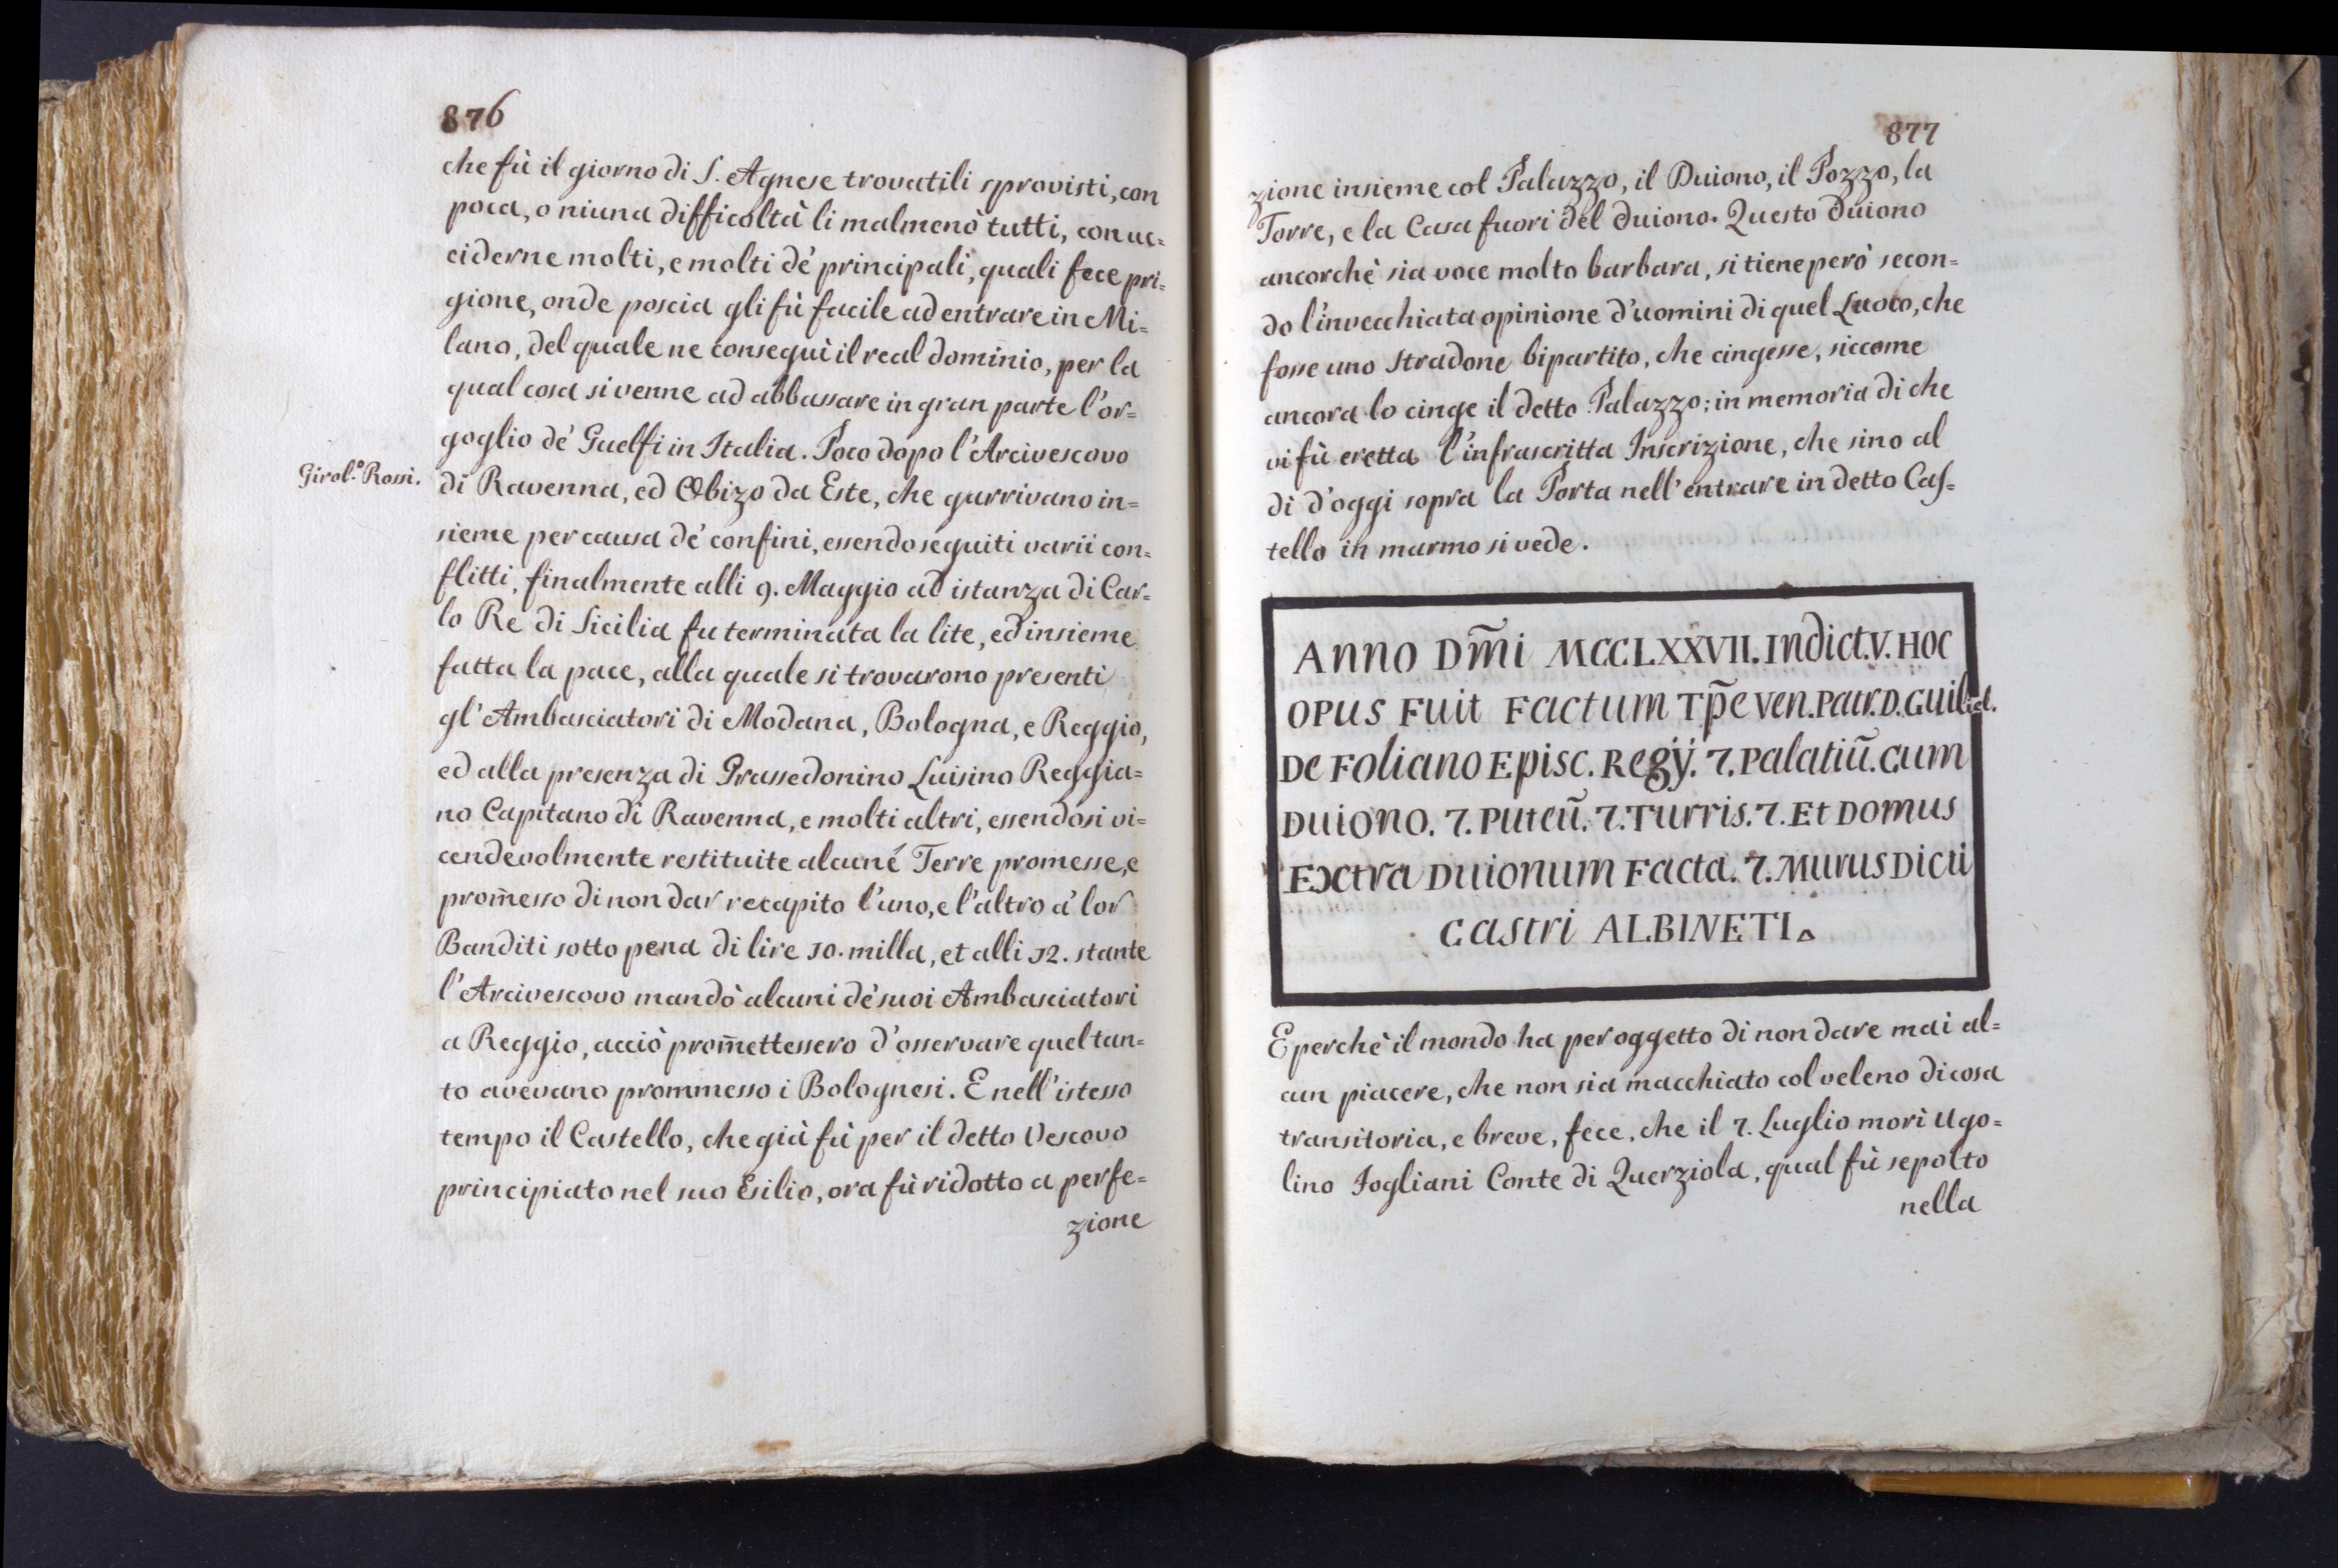 876
che fù il giorno di S. Agnese trovatili sprovisti, con
poca, o niuna difficoltà li malmenò tutti, con uc=
ciderne molti, e molti dè principali, quali fece pri=
gione, onde poscia gli fù facile ad entrare in Mi=
lano, del quale ne conseguì il real dominio, per la
qual cosa si venne ad abbassare in gran parte l'or=
goglio dè Guelfi in Italia. Poco dopo l'Arcivescovo
Girol.º Rossi.
di Ravenna, ed Obizo da Este, che garrivano in=
sieme per causa dè confini, essendo seguiti varii con=
flitti, finalmente alli 9. Maggio ad istanza di Car=
lo Re di Sicilia fu terminata la lite, ed insieme
fatta la pace, alla quale si trovarono presenti
gl'Ambasciatori di Modana, Bologna, e Reggio,
ed alla presenza di Grassedonino Luisino Reggia=
no Capitano di Ravenna, e molti altri, essendosi vi=
cendevolmente restituite alcune Terre promesse, e
prom̃esso di non dar recapito l'uno, e l'altro à lor
Banditi sotto pena di lire 10. milla, et alli 12. stante
l'Arcivescovo mandò alcuni dè suoi Ambasciatori
a Reggio, acciò prom̃ettessero d'osservare quel tan=
to avevano prommesso i Bolognesi. E nell'istesso
tempo il Castello, che già fù per il detto Vescovo
principiato nel suo Esilio, ora fù ridotto a perfe=
zione
877
zione insieme col Palazzo, il Duiono, il Pozzo, la
Torre, e la Casa fuori del duiono. Questo duiono
ancorchè sia voce molto barbara, si tiene però secon=
do l'invecchiata opinione d'uomini di quel Luoco, che
fosse uno stradone bipartito, che cingesse, siccome
ancora lo cinge il detto Palazzo; in memoria di che
vi fù eretta l'infrascritta Inscrizione, che sino al
dì d'oggi sopra la Porta nell'entrare in detto Cas=
tello in marmo si vede.
Anno Dm̃i MCCLXXVII. Indict. V. HOC
OPUS Fuit Factum Tp̃e Ven. Patr. D. Guiliel.
De Foliano Episc. Regÿ. 7. Palatiũ. Cum
Duiono. 7. Puteũ. 7. Turris. 7. Et Domus
Extra Duionum Facta. 7. Murus Dicti
Castri ALBINETI.
E perchè il mondo ha per oggetto di non dare mai al=
cun piacere, che non sia macchiato col veleno di cosa
transitoria, e breve, fece, che il 7. Luglio morì Ugo=
lino Fogliani Conte di Querziola, qual fù sepolto
nella